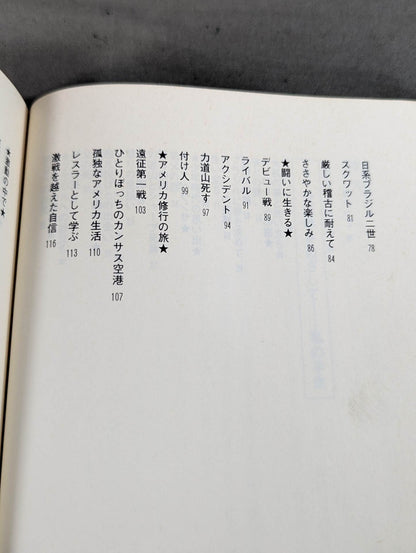 日系ブラジル二世 78
スクワット 81
厳しい稽古に耐えて 84
ささやかな楽しみ 86
★闘いに生きる★
デビュー戦 89
ライバル 91
アクシデント 94
力道山死す 97
付け人 99
★アメリカ修行の旅★
遠征第一戦 103
ひとりぼっちのカンサス空港 107
孤独なアメリカ生活 110
レスラーとして学ぶ 113
激戦を越えた自信 116
★激動の中で★